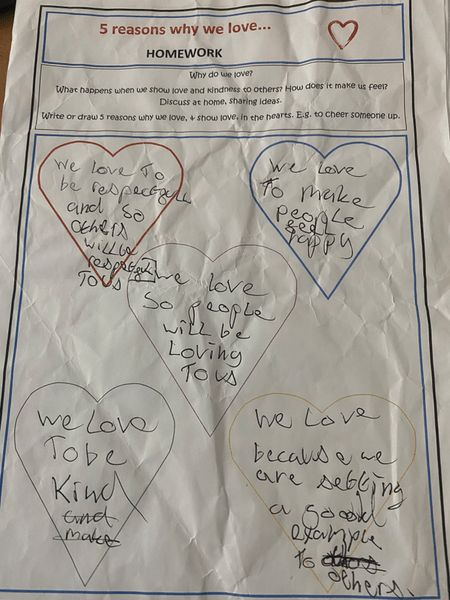 5 reasons why we love...
HOMEWORK
Why do we love?
What happens when we show love and kindness to others? How does it make us feel?
Discuss at home, sharing ideas.
Write or draw 5 reasons why we love, & show love, in the hearts. E.g. to cheer someone up.
We love To
be respectfull
and so
others
will be
respectful
To us
We Love
To make
people
feel
happy
we love
So people
will be
Loving
To us
We Love
To be
Kind
and
make
We Love
because we
are setting
a good
example
To
others.